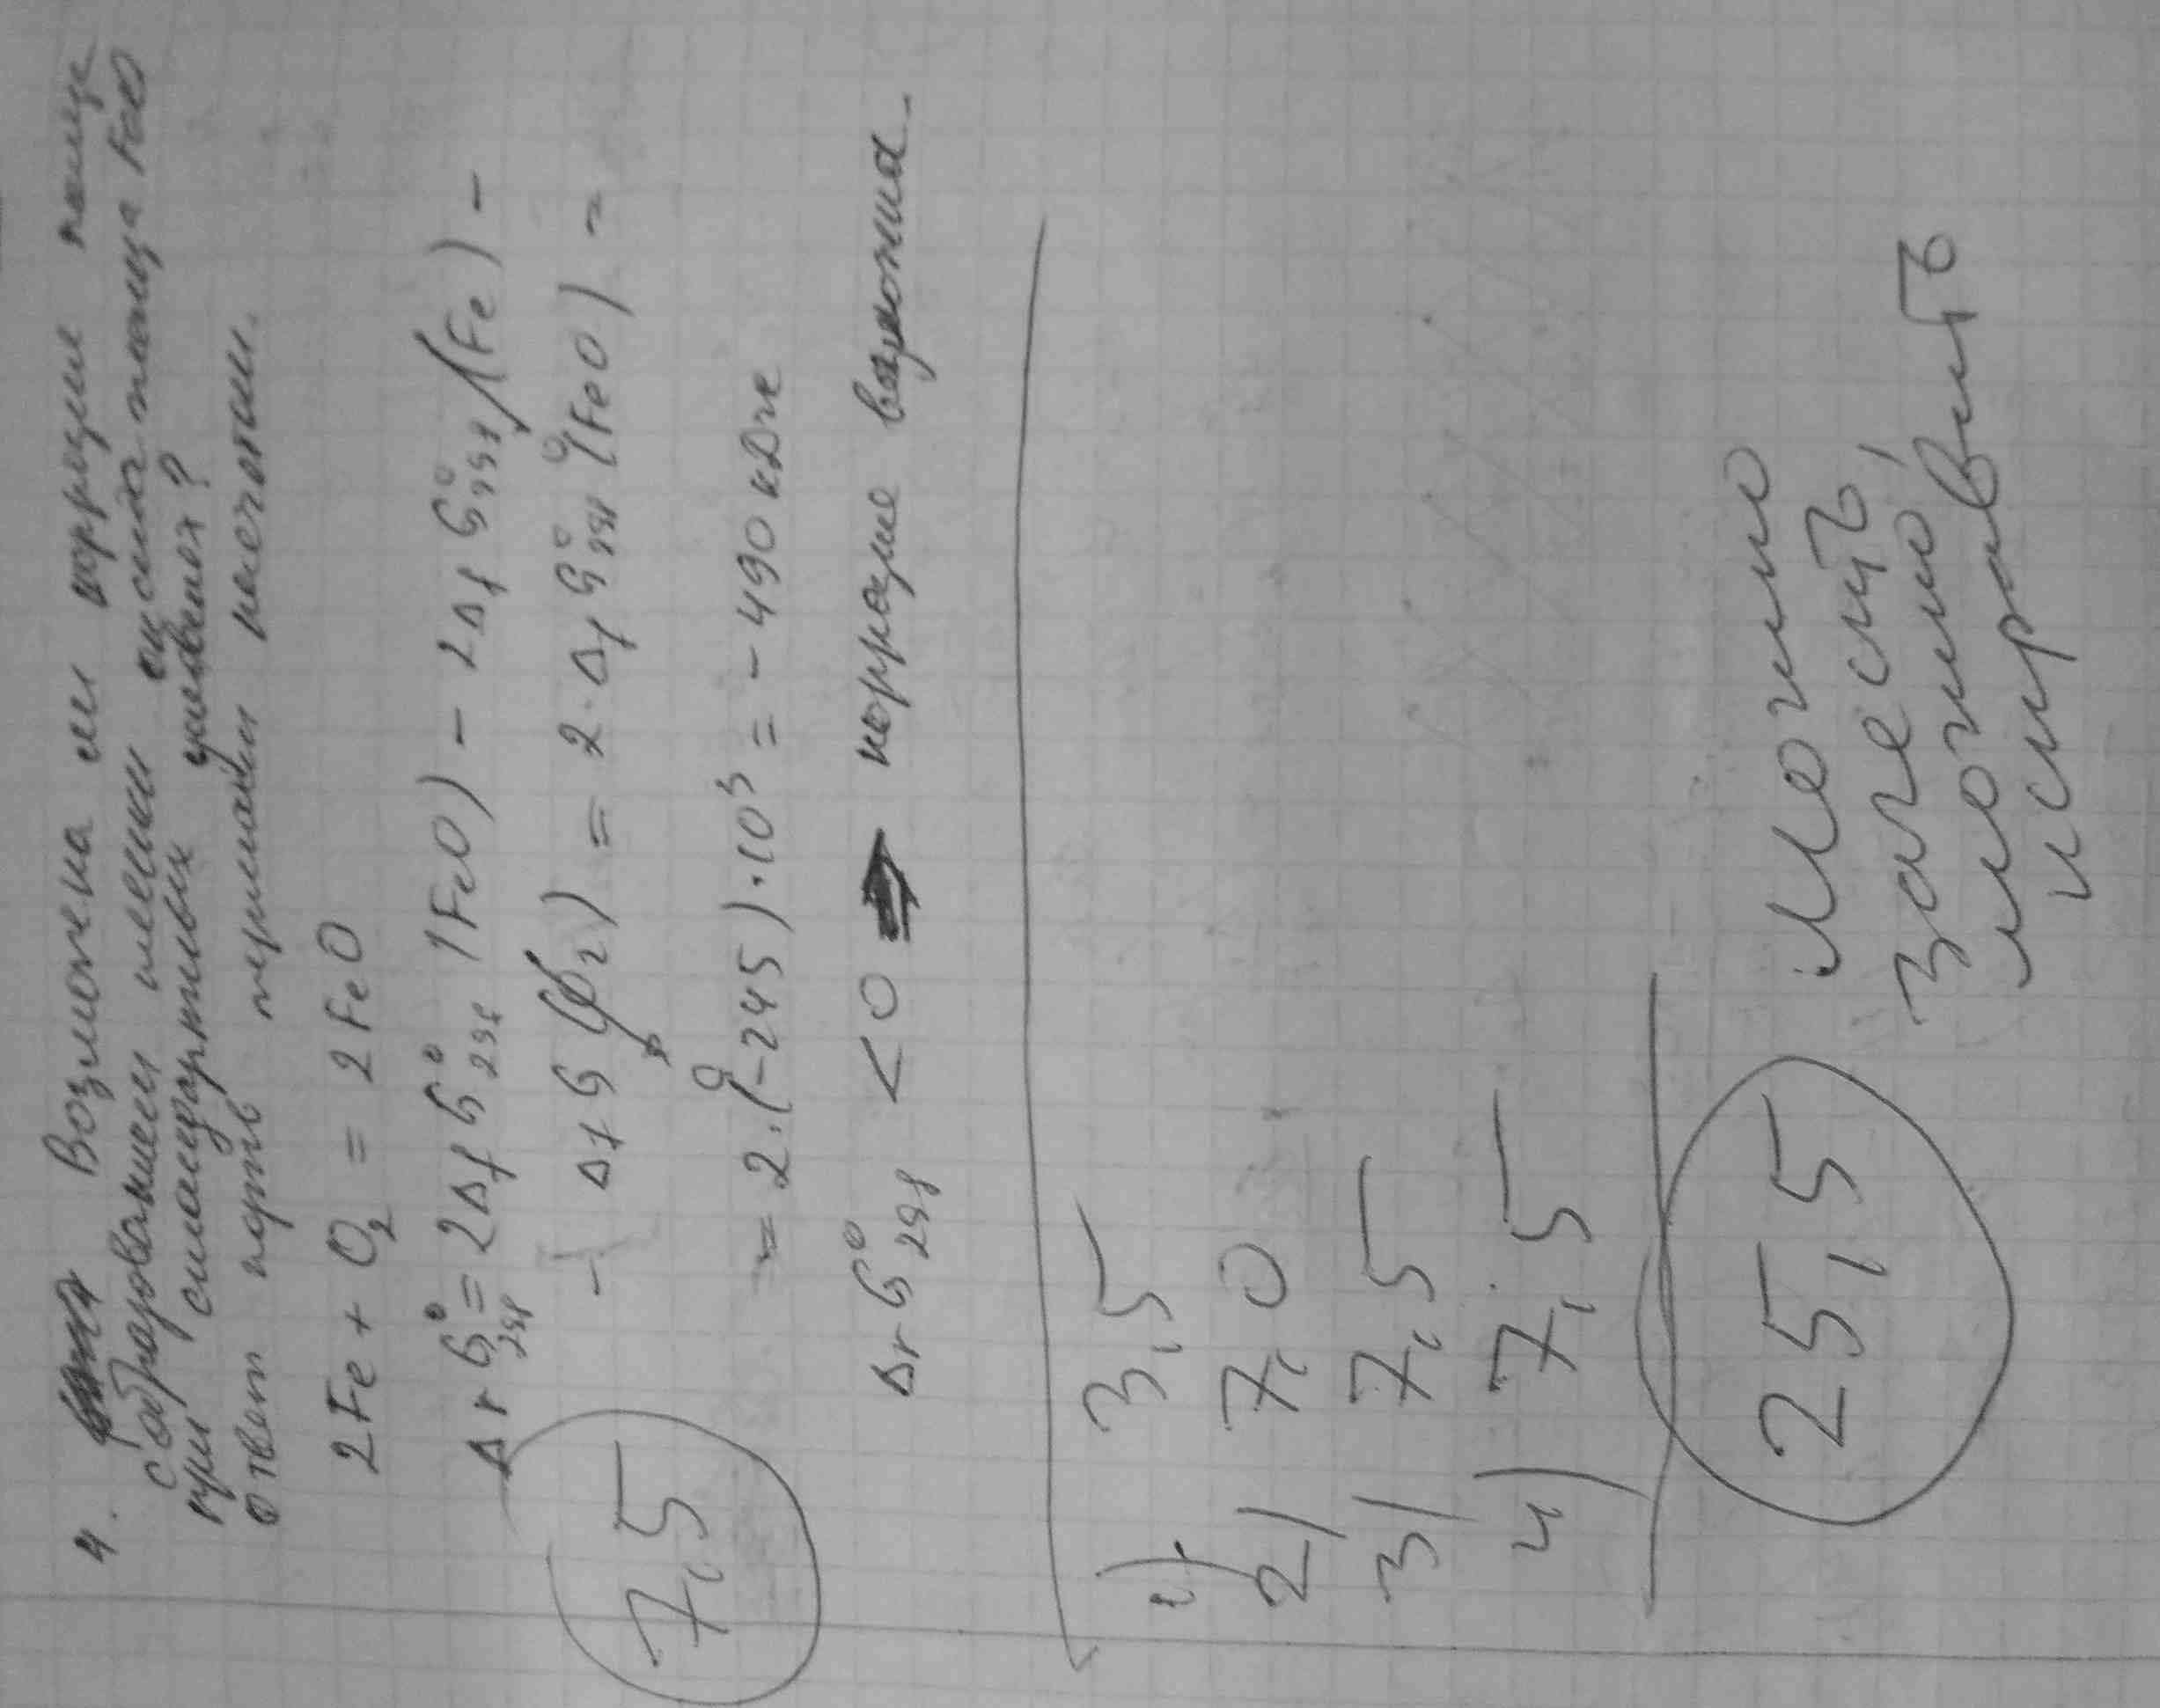 4. Возможна ли коррозия танца
с образованием пленки оксида танца FeO
при стандартных условиях?
Ответ подтв термодин расчетом.
2Fe + O₂ = 2FeO
ΔrG°₂₉₈ = 2ΔfG°₂₉₈ (FeO) - 2ΔfG°₂₉₈ (Fe) -
- ΔfG (O₂) = 2·ΔfG°₂₉₈ (FeO) =
0
0
= 2·(-245)·10³ = -490 кДж
ΔrG°₂₉₈ < 0 ⇒ коррозия возможна.
7,5
1) 3,5
2) 7,0
3) 7,5
4) 7,5
25,5
Можно
зачесть,
можно
исправить